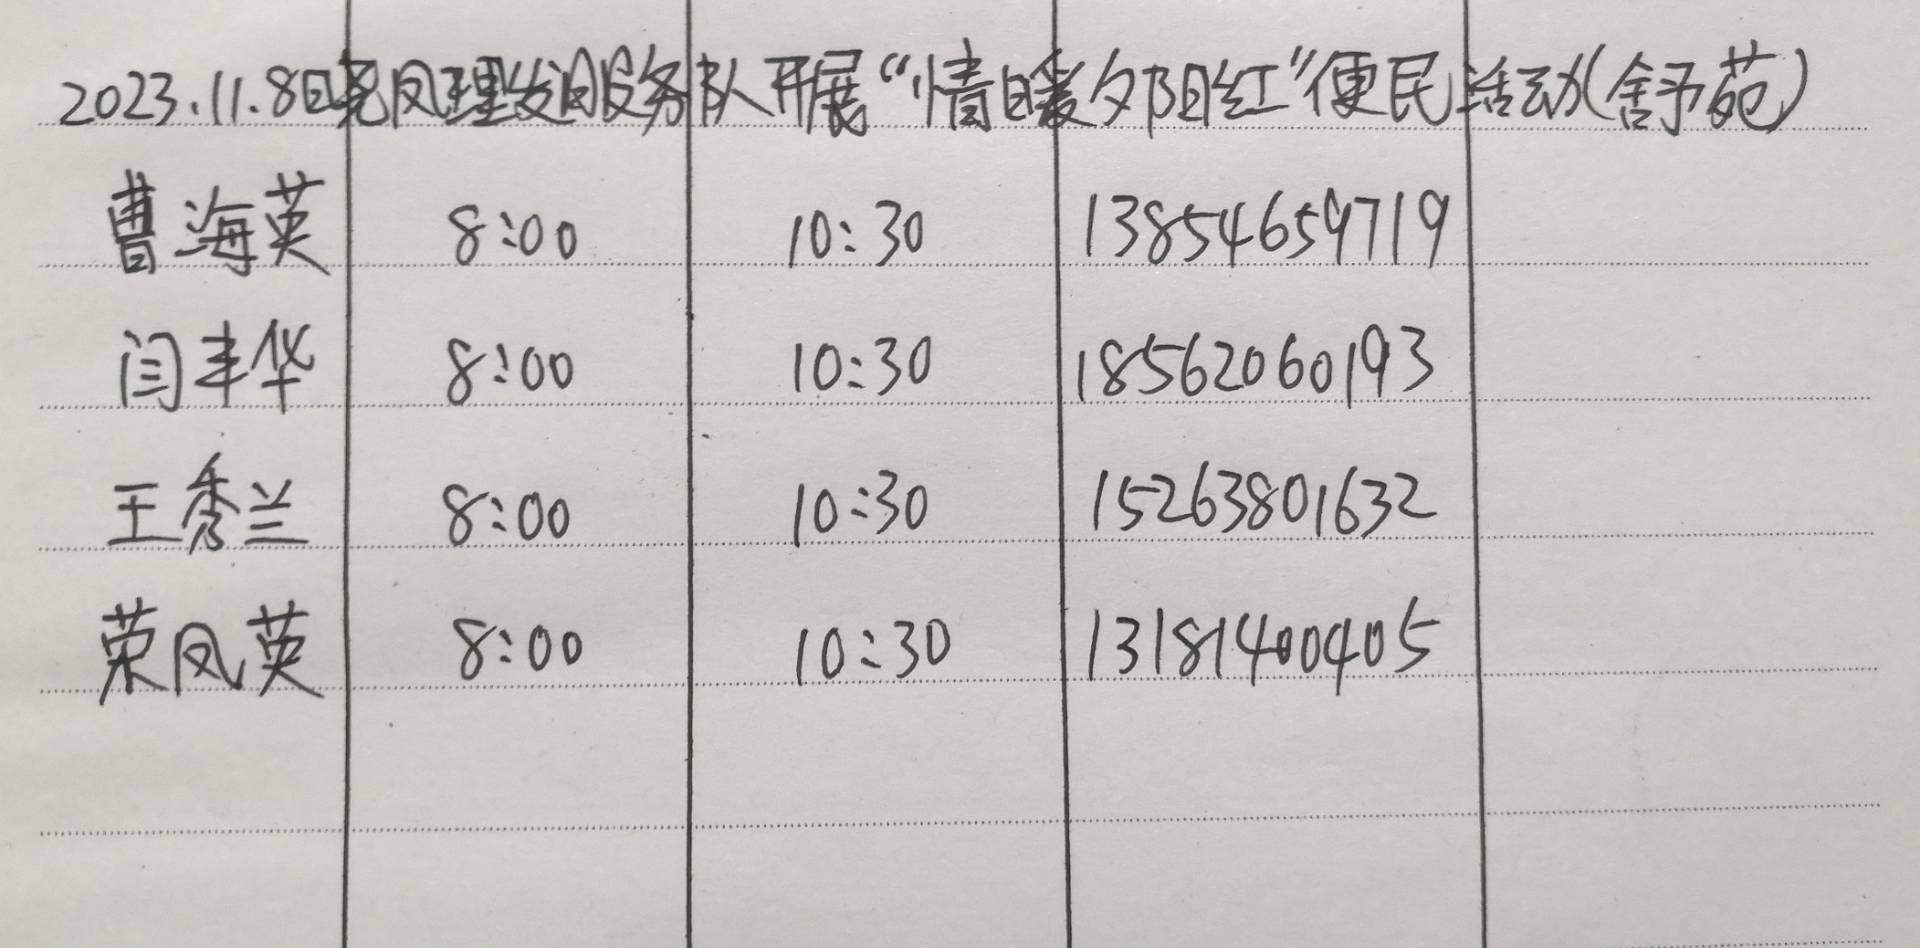 2023.11.8日尧凤理发服务队开展“情暖夕阳红”便民活动(舒苑)
曹海英 8:00 10:30 13854659719
闫丰华 8:00 10:30 18562060193
王秀兰 8:00 10:30 15263801632
荣凤英 8:00 10:30 13181400405